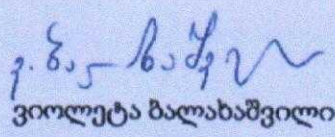 ვიოლეტა ბალახაშვილი